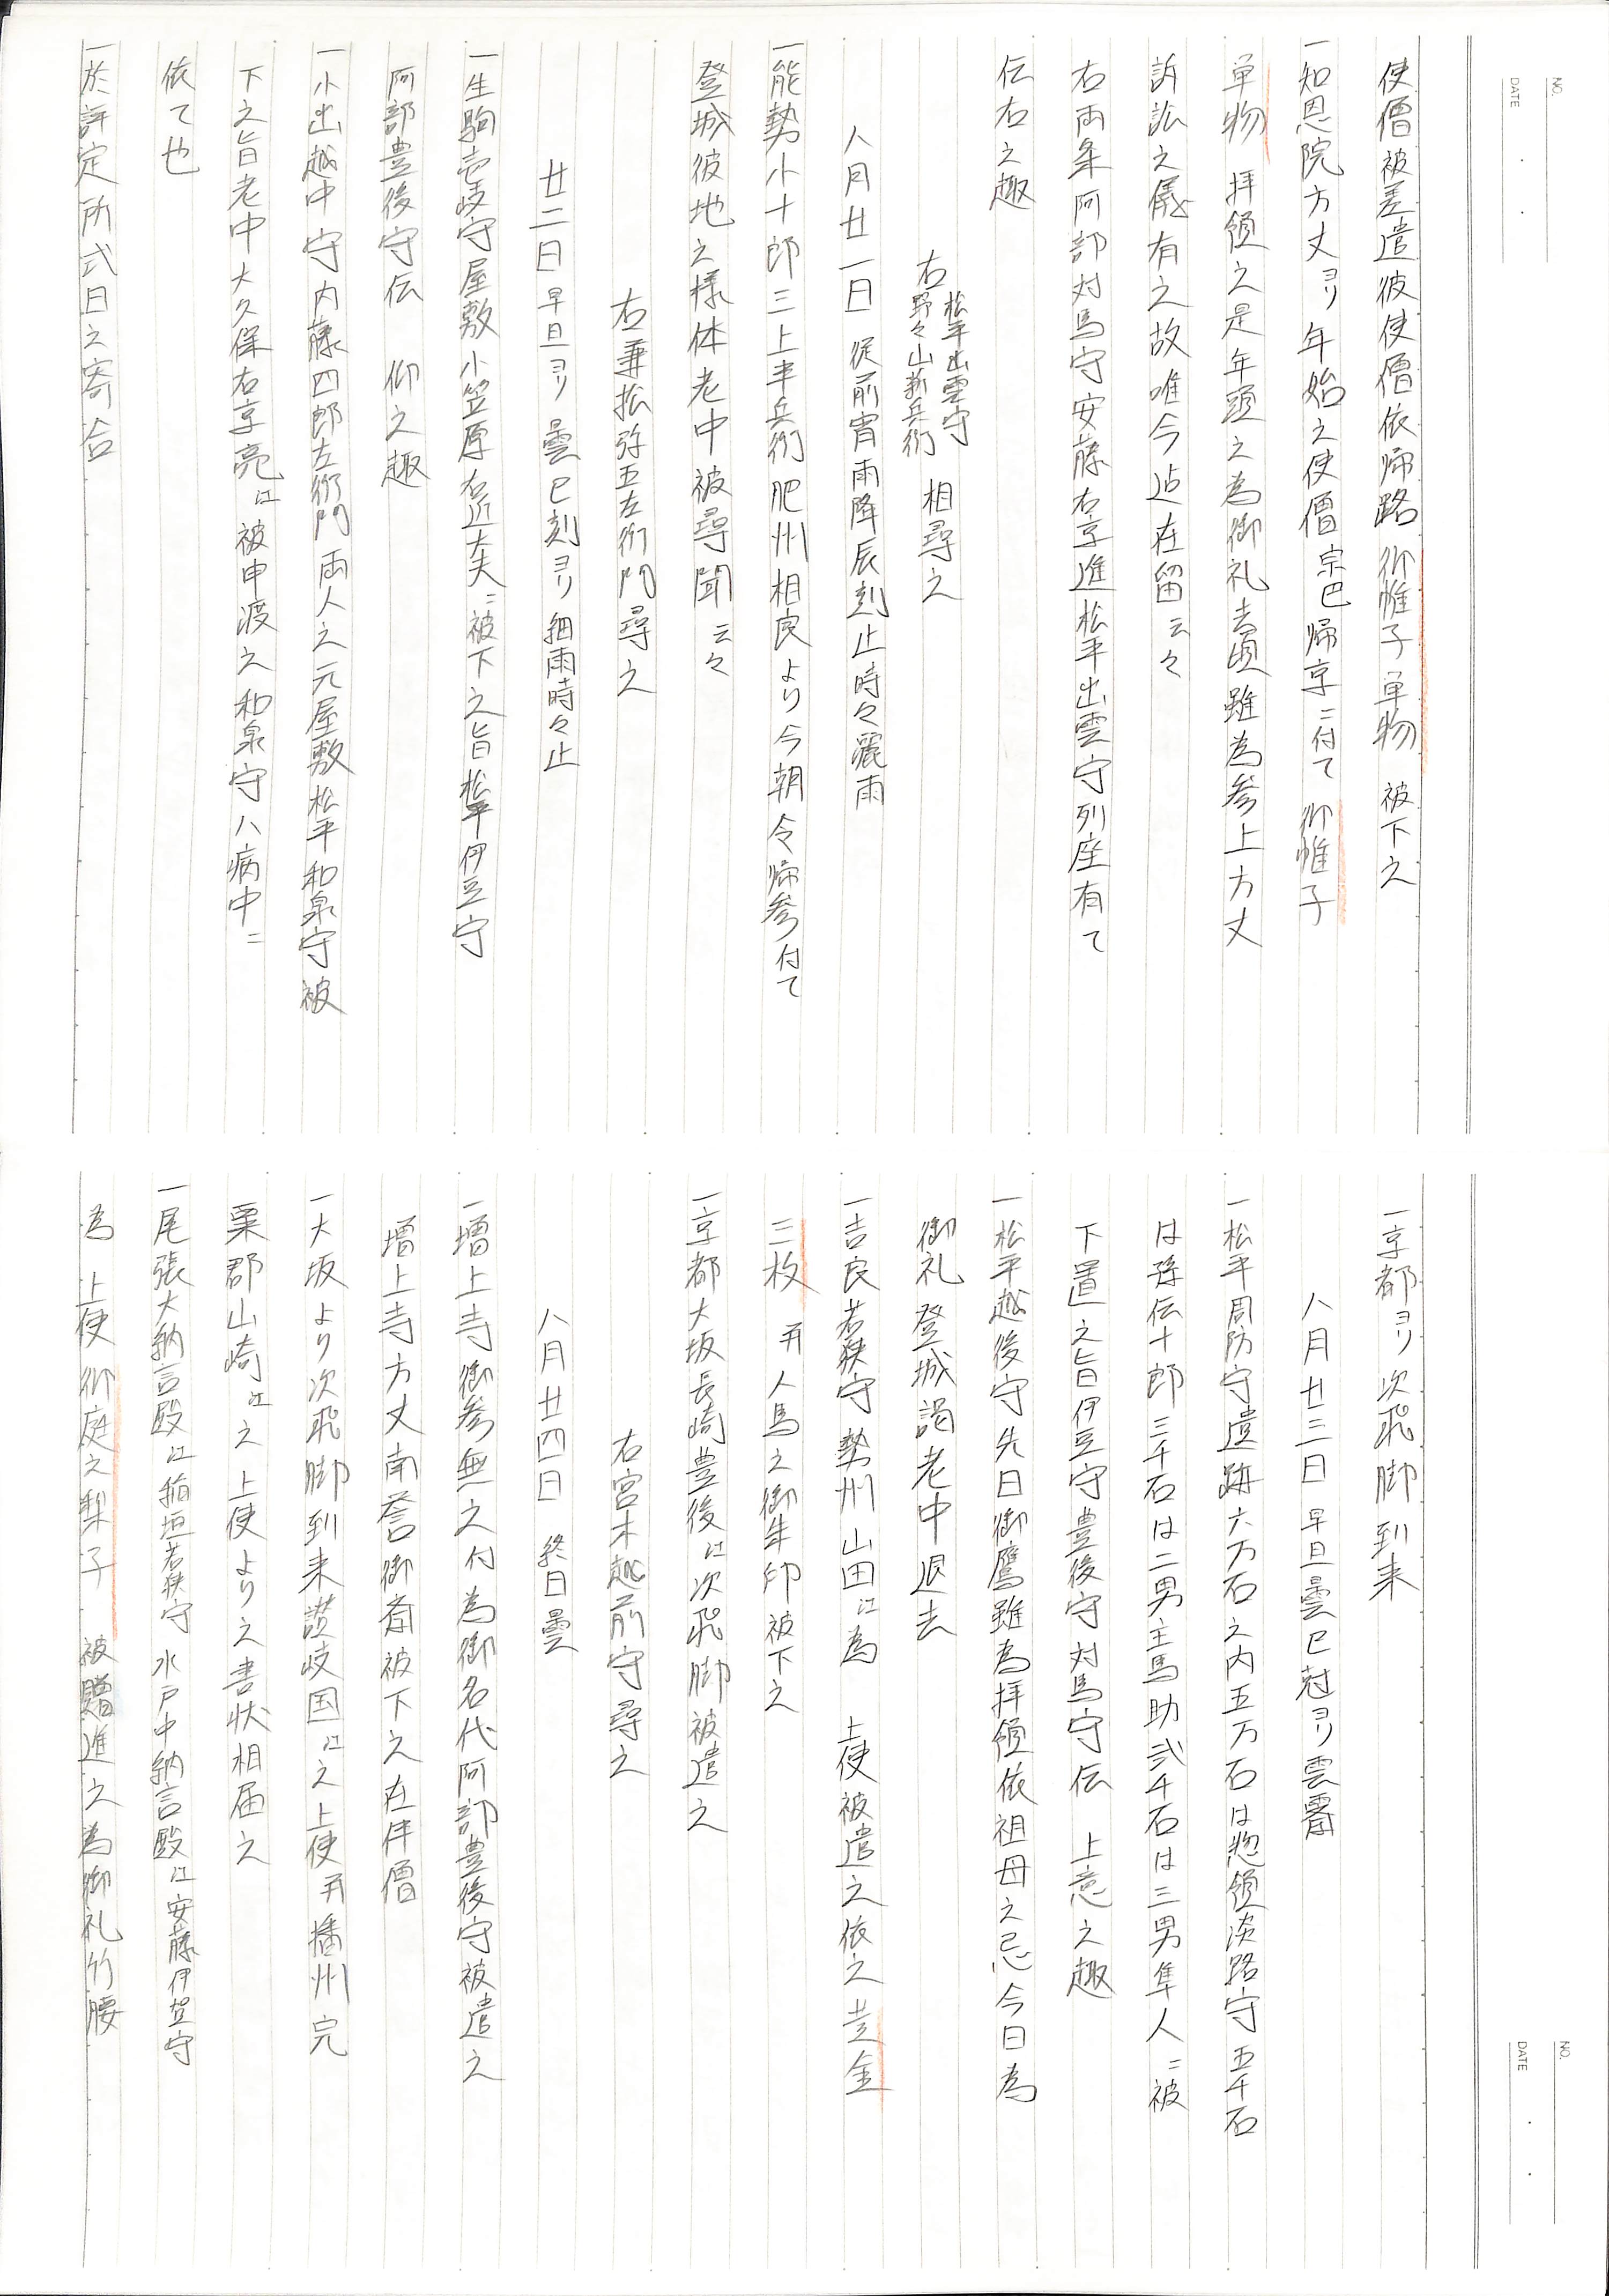 NO.
DATE
使僧被差遣彼使僧依帰路 御帷子単物 被下之
一知恩院方丈ヨリ年始之使僧宗巴帰京ニ付て 御帷子
単物 拝領之是年頭之為御礼去頃雖為参上方丈
訴訟之儀有之故唯今迄在留云々
右両条阿部対馬守安藤右京進松平出雲守列座有て
伝右之趣
右 松平出雲守 野々山新兵衛 相尋之
八月廿一日 従前宵雨降辰刻止時々灑雨
一能勢小十郎三上半兵衛肥州相良より今朝令帰参付て
登城彼地之様体老中被尋聞云々
右兼松弥五左衛門尋之
廿二日 早旦ヨリ曇巳刻ヨリ細雨時々止
一生駒壱岐守屋敷小笠原右近大夫ニ被下之旨松平伊豆守
阿部豊後守伝 仰之趣
一小出越中守内藤四郎左衛門両人之元屋敷松平和泉守被
下之旨老中大久保右京亮江被申渡之和泉守ハ病中ニ
依て也
一於評定所式日之寄合
NO.
DATE
一京都ヨリ次飛脚到来
八月廿三日 早旦曇巳刻ヨリ雲霽
一松平周防守遺跡六万石之内五万石は惣領淡路守五千石
は孫伝十郎三千石は二男主馬助弐千石は三男隼人ニ被
下置之旨伊豆守豊後守対馬守伝 上意之趣
一松平越後守先日御鷹雖為拝領依祖母之忌今日為
御礼登城謁老中退去
一吉良若狭守勢州山田江為 上使被遣之依之黄金
三枚 并人馬之御朱印被下之
一京都大坂長崎豊後江次飛脚被遣之
右宮木越前守尋之
八月廿四日 終日曇
一増上寺御参無之付為御名代阿部豊後守被遣之
増上寺方丈南誉御斎被下之在伴僧
一大坂より次飛脚到来讃岐国江之上使并播州完
粟郡山崎江之上使より之書状相届之
一尾張大納言殿江稲垣若狭守水戸中納言殿江安藤伊賀守
為 上使 御庭之梨子 被贈進之為御礼竹腰